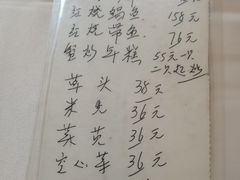 红烧鲳鱼 158元
红烧带鱼 76元
蟹炒年糕 55元一只
二只起炒
草头 38元
米苋 36元
菜苋 36元
空心菜 36元